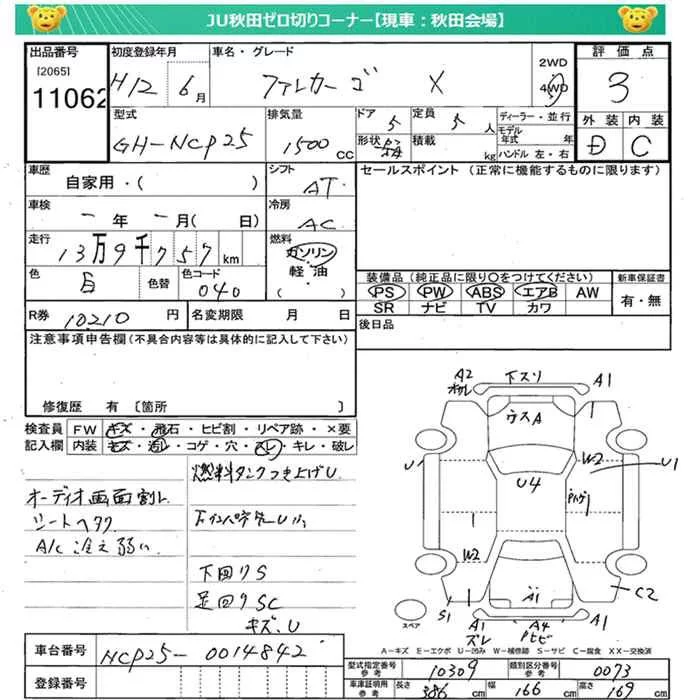 JU秋田ゼロ切りコーナー【現車：秋田会場】
出品番号 初度登録年月 車名・グレード 2WD 評価点
[2065] H12 6月 ファンカーゴ X 4WD 3
11062
型式 排気量 ドア 定員 ディーラー・並行 外装 内装
GH-NCP25 1500 CC 5 5人 モデル年式 年 D C
形状 積載 kg ハンドル 左・右
車歴 シフト セールスポイント (正常に機能するものに限ります)
自家用・( ) AT
車検 冷房
－年－月( 日) AC
走行 燃料
13万9千757km ガソリン
軽・油
( )
色 色替 色コード 装備品(純正品に限り○をつけてください) 新車保証書
白 040 PS PW ABS エアB AW 有・無
SR ナビ TV カワ
R券 10210円 名変期限 月 日 後日品
注意事項申告欄(不具合内容等は具体的に記入して下さい)
修復歴 有〔箇所
検査員 FW キズ・飛石・ヒビ割・リペア跡・×要
記入欄 内装 キズ・汚レ・コゲ・穴・スレ・キレ・破レ
燃料タンクつき上げU
オーディオ画面割レ
シートヘタク
A/C 冷え弱い
下回りS
足回りSC
キズ、U
A2 下スリ A1
ウスA
U W2 U1
U4
W2
C2
S1 A1 A1 A4 A1
ズレ
スペア
A－キズ E－エクボ U－凹み W－補修跡 S－サビ C－腐食 XX－交換済
車台番号 NCP25-0014842
登録番号
型式指定番号 参考 10309 類別区分番号 参考 0073
車庫証明用 参考 長さ 386cm 幅 166cm 高さ 169cm